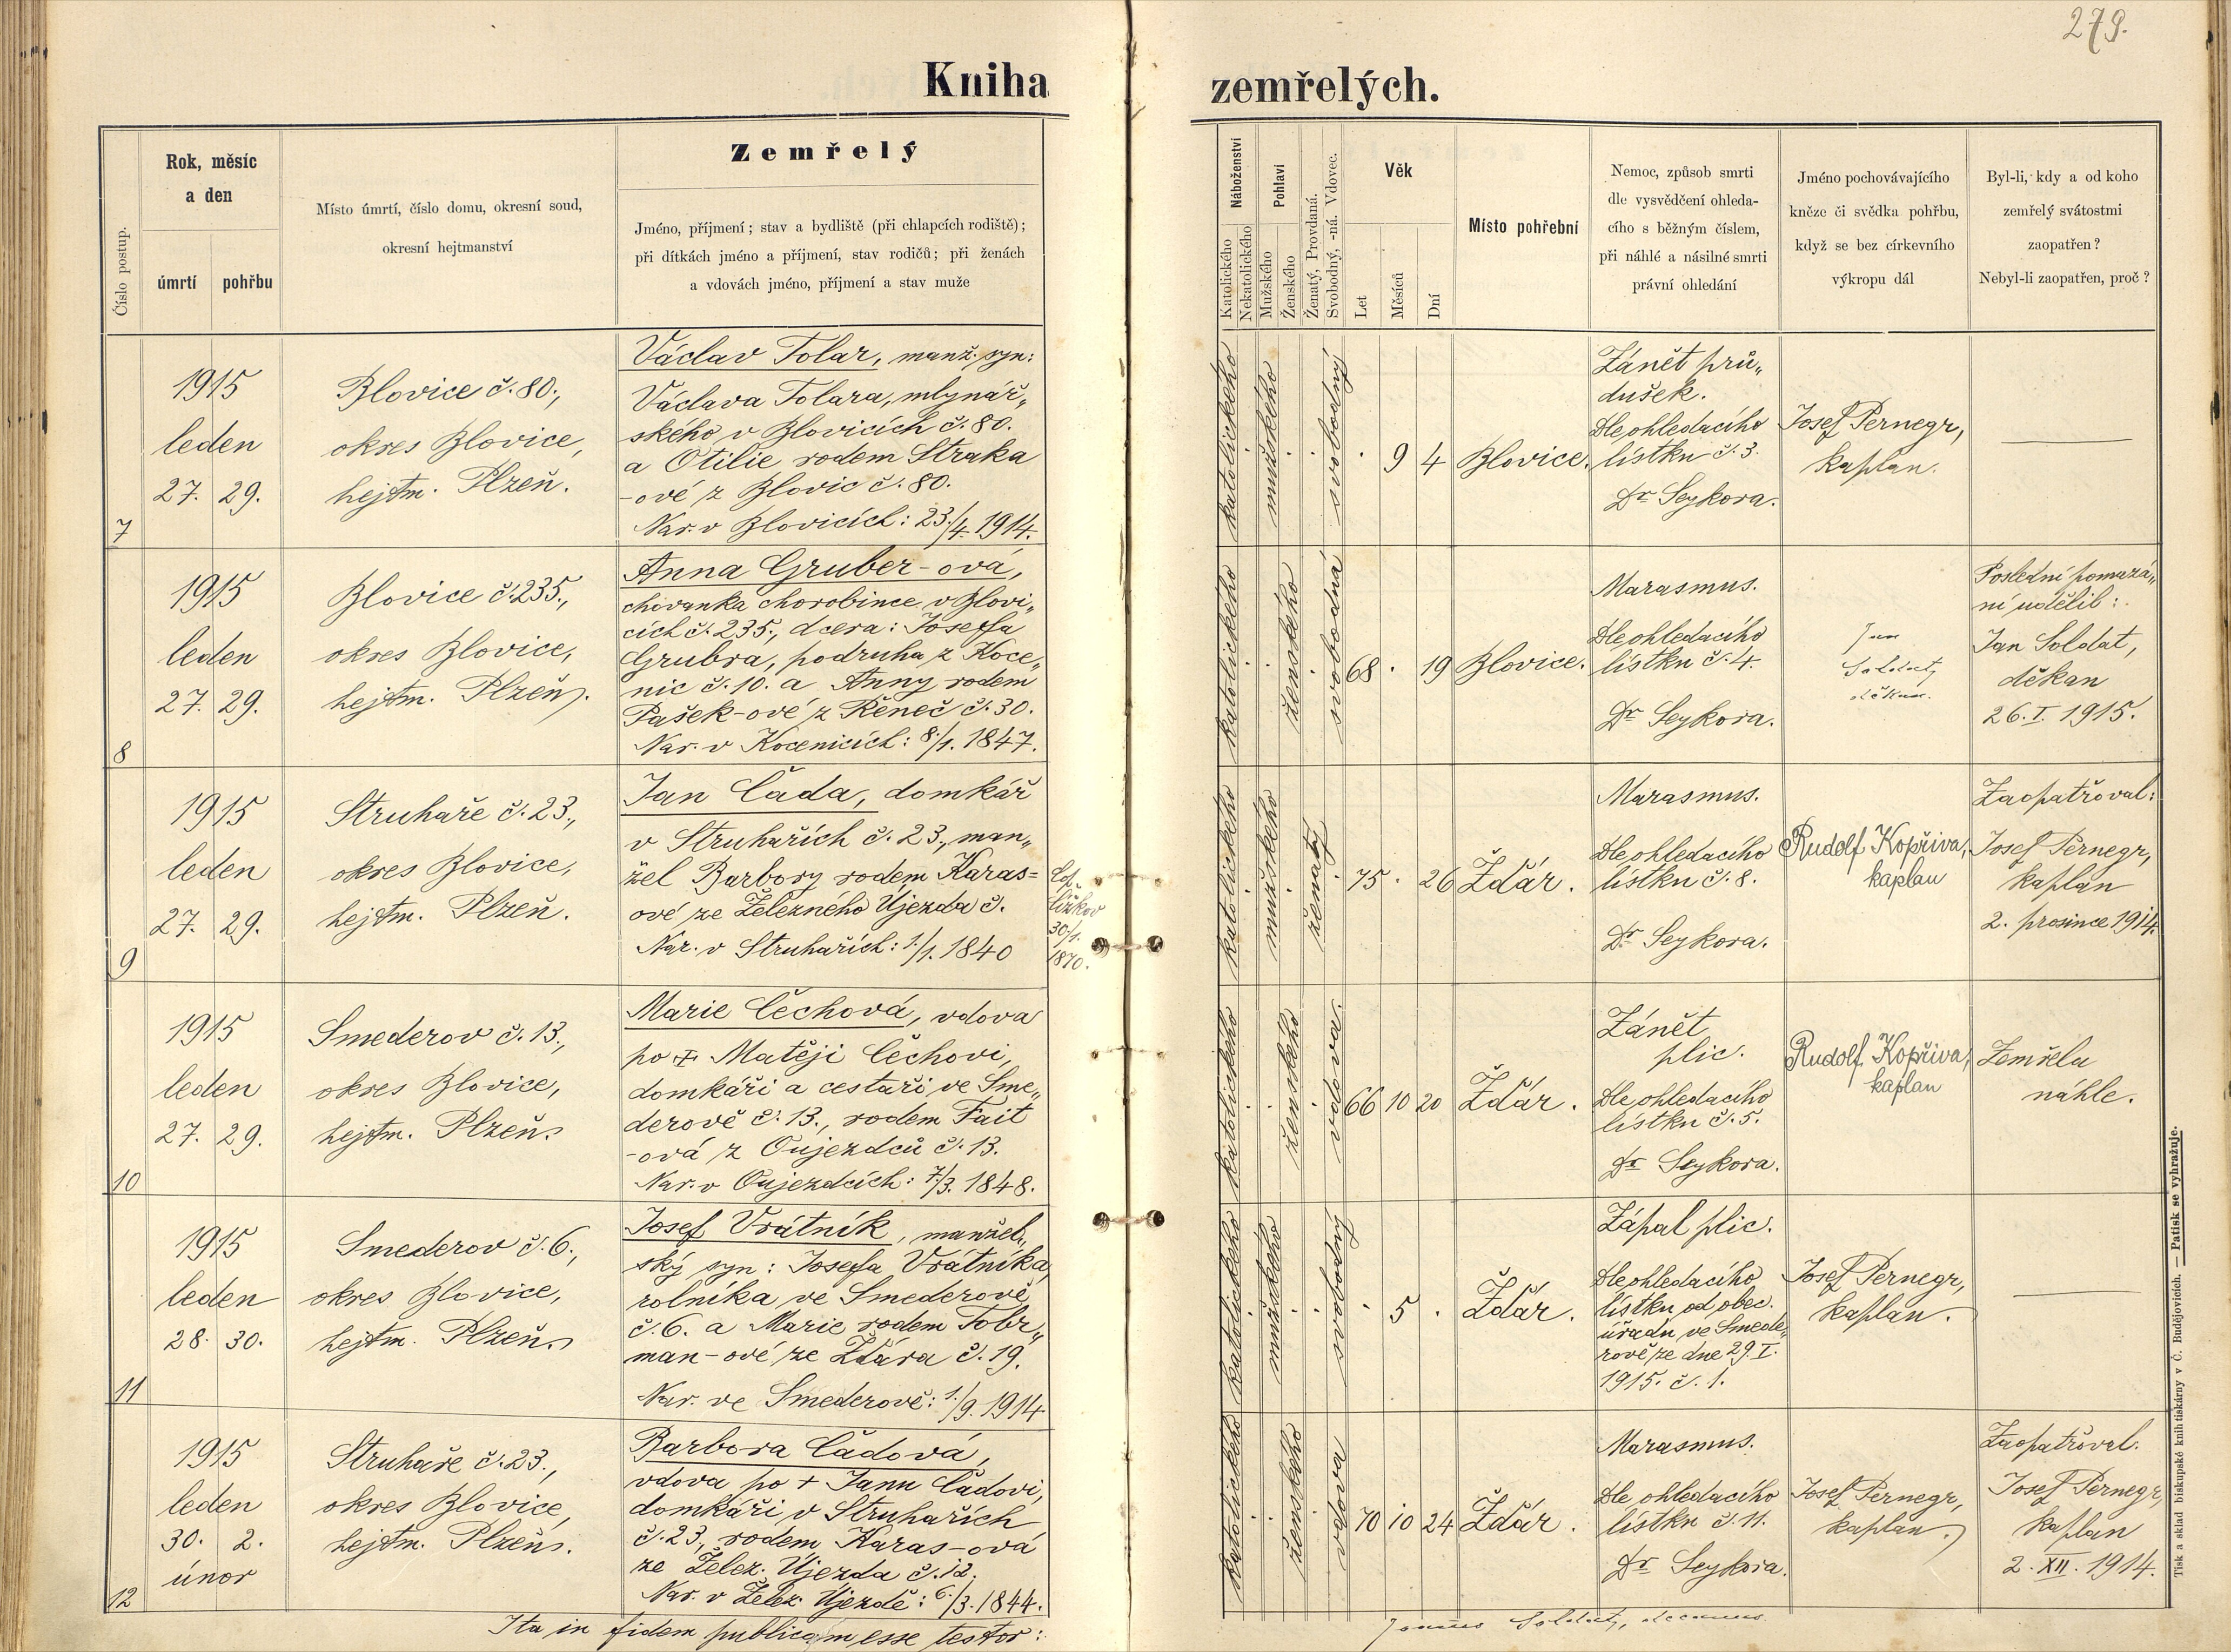 279.
Kniha zemřelých.
Číslo postup.
Rok, měsíc
a den
úmrtí
pohřbu
Místo úmrtí, číslo domu, okresní soud,
okresní hejtmanství
Zemřelý
Jméno, příjmení; stav a bydliště (při chlapcích rodiště);
při dítkách jméno a příjmení, stav rodičů; při ženách
a vdovách jméno, příjmení a stav muže
Náboženství
Katolického
Nekatolického
Pohlaví
Mužského
Ženského
Ženatý, Provdaná.
Svobodný, -ná. Vdovec.
Věk
Let
Měsíců
Dní
Místo pohřební
Nemoc, způsob smrti
dle vysvědčení ohleda-
cího s běžným číslem,
při náhlé a násilné smrti
právní ohledání
Jméno pochovávajícího
kněze či svědka pohřbu,
když se bez církevního
výkropu dál
Byl-li, kdy a od koho
zemřelý svátostmi
zaopatřen?
Nebyl-li zaopatřen, proč?
7
1915
leden
27. 29.
Blovice č. 80.,
okres Blovice,
hejtm. Plzeň.
Václav Tolar, manž. syn:
Václava Tolara, mlynář„
ského v Blovicích č. 80.
a Otilie rodem Straka
-ové z Blovic č. 80.
Nar. v Blovicích: 23./4. 1914.
katolického
mužského
svobodný
9 4
Blovice.
Zánět prů„
dušek.
Dle ohledacího
lístku č. 3.
Dr Seykora.
Josef Pernegr,
kaplan.
8
1915
leden
27. 29.
Blovice č. 235.,
okres Blovice,
hejtm. Plzeň.
Anna Gruber-ová,
chovanka chorobince v Blovi„
cích č. 235., dcera: Josefa
Grubra, podruha z Koce„
nic č. 10. a Anny rodem
Pašek-ové z Řeneč č. 30.
Nar. v Kocenicích: 8./1. 1847.
katolického
ženského
svobodná
68 . 19
Blovice.
Marasmus.
Dle ohledacího
lístku č. 4.
Dr Seykora.
Jan
Soldat,
děkan.
Poslední pomazá„
ní udělil:
Jan Soldat,
děkan
26. I. 1915.
9
1915
leden
27. 29.
Struhaře č. 23.,
okres Blovice,
hejtm. Plzeň.
Jan Čada, domkář
v Struhařích č. 23., man„
žel Barbory rodem Karas=
ové ze Železného Újezda č.
Nar. v Struhařích: 1./1. 1840
30/1.
1870.
katolického
mužského
ženatý
75 . 26
Ždár.
Marasmus.
Dle ohledacího
lístku č. 8.
Dr Seykora.
Rudolf Kopřiva,
kaplan
Zaopatřoval:
Josef Pernegr,
kaplan
2. prosince 1914.
10
1915
leden
27. 29.
Smederov č. 13.,
okres Blovice,
hejtm. Plzeň.
Marie Čechová, vdova
po + Matěji Čechovi,
domkáři a cestaři ve Sme„
derově č. 13., rodem Fait
-ová z Oujezdců č. 13.
Nar. v Oujezdcích: 7./3. 1848.
katolického
ženského
vdova.
66 10 20
Ždár.
Zánět
plic.
Dle ohledacího
lístku č. 5.
Dr Seykora.
Rudolf Kopřiva,
kaplan
Zemřela
náhle.
11
1915
leden
28. 30.
Smederov č. 6.,
okres Blovice,
hejtm. Plzeň.
Josef Vrátník, manžel„
ský syn: Josefa Vrátníka,
rolníka ve Smederově
č. 6. a Marie rodem Tobr„
man-ové ze Ždára č. 19.
Nar. ve Smederově: 1./9. 1914
katolického
mužského
svobodný
. 5 .
Ždár.
Zápal plic.
Dle ohledacího
lístku od obec.
úřadu ve Smede„
rově ze dne 29. I.
1915. č. 1.
Josef Pernegr,
kaplan.
12
1915
leden
30. 2.
únor
Struhaře č. 23.,
okres Blovice,
hejtm. Plzeň.
Barbora Čadová,
vdova po + Janu Čadovi,
domkáři v Struhařích
č. 23., rodem Karas-ová
ze Želez. Újezda č. 12.
Nar. v Želez. Újezdě: 6./3. 1844.
katolického
ženského
vdova
70 10 24
Ždár.
Marasmus.
Dle ohledacího
lístku č. 11.
Dr Seykora.
Josef Pernegr,
kaplan.
Zaopatřoval.
Josef Pernegr,
kaplan
2. XII. 1914.
Ita in fidem publicam esse testor:
Joannes Soldat, decanus.
Tisk a sklad biskupské knihtiskárny v Č. Budějovicích. — Patisk se vyhražuje.